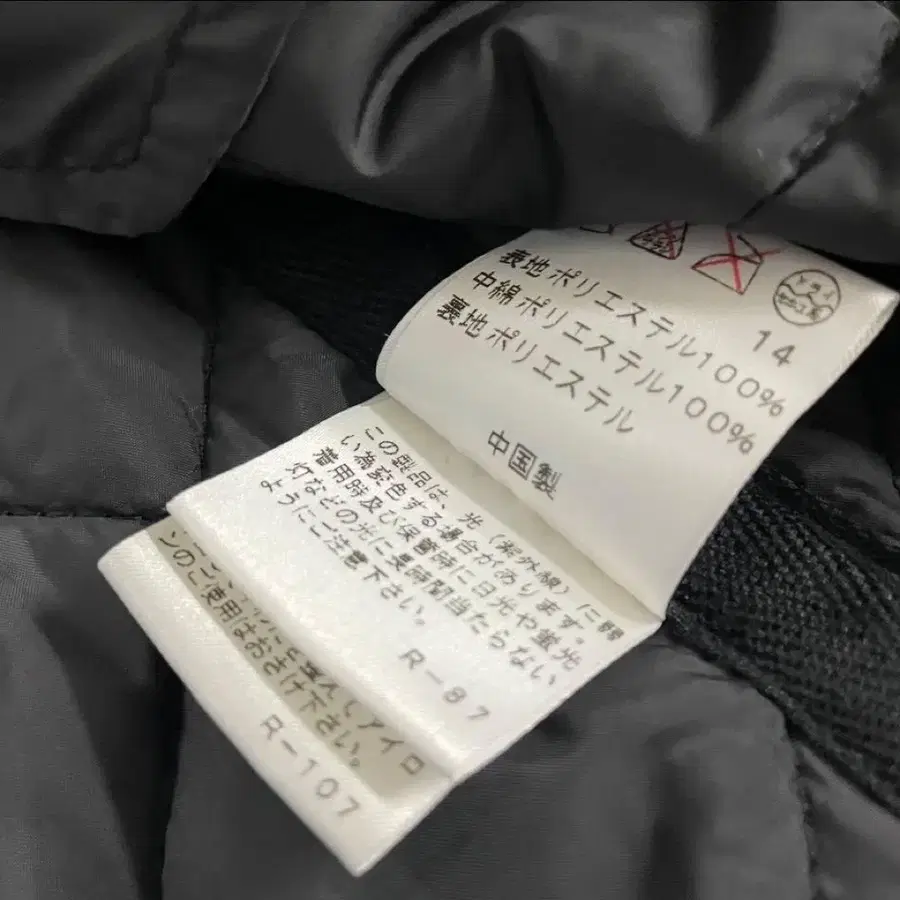 14
表地ポリエステル100%
中綿ポリエステル100%
裏地ポリエステル
中国製
この製品は、光(紫外線)に弱
い為変色する場合があります。
着用時及び保管時に日光や蛍光
灯などの光に長時間当たらない
ようにご注意下さい。
R-87
アイロ
ンのご使用はおさけ下さい。
R-107